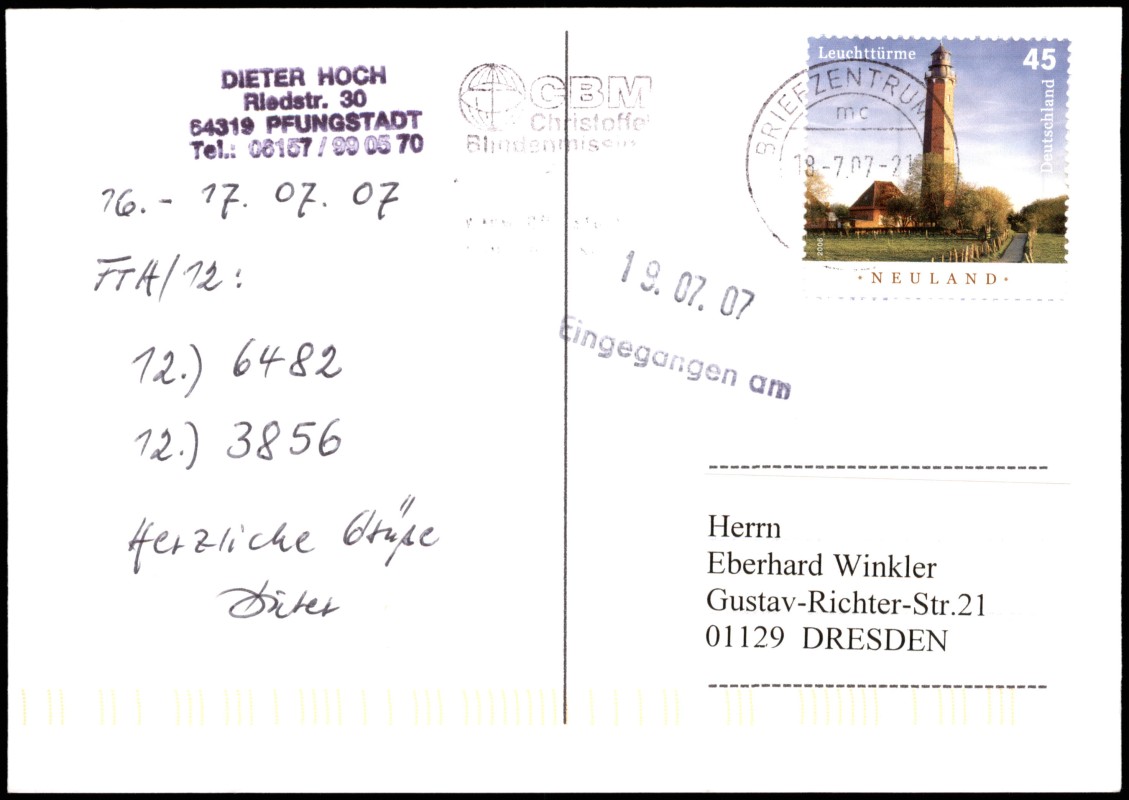 DIETER HOCH
Riedstr. 30
64319 PFUNGSTADT
Tel.: 06157 / 99 05 70
16. - 17. 07. 07
FTA/12:
12.) 6482
12.) 3856
Herzliche Grüße
Dieter
CBM
Christoffel
Blindenmission
BRIEFZENTRUM
mc
18-7.07-21
Leuchttürme
45
Deutschland
2006
· NEULAND ·
19. 07. 07
Eingegangen am
Herrn
Eberhard Winkler
Gustav-Richter-Str.21
01129 DRESDEN